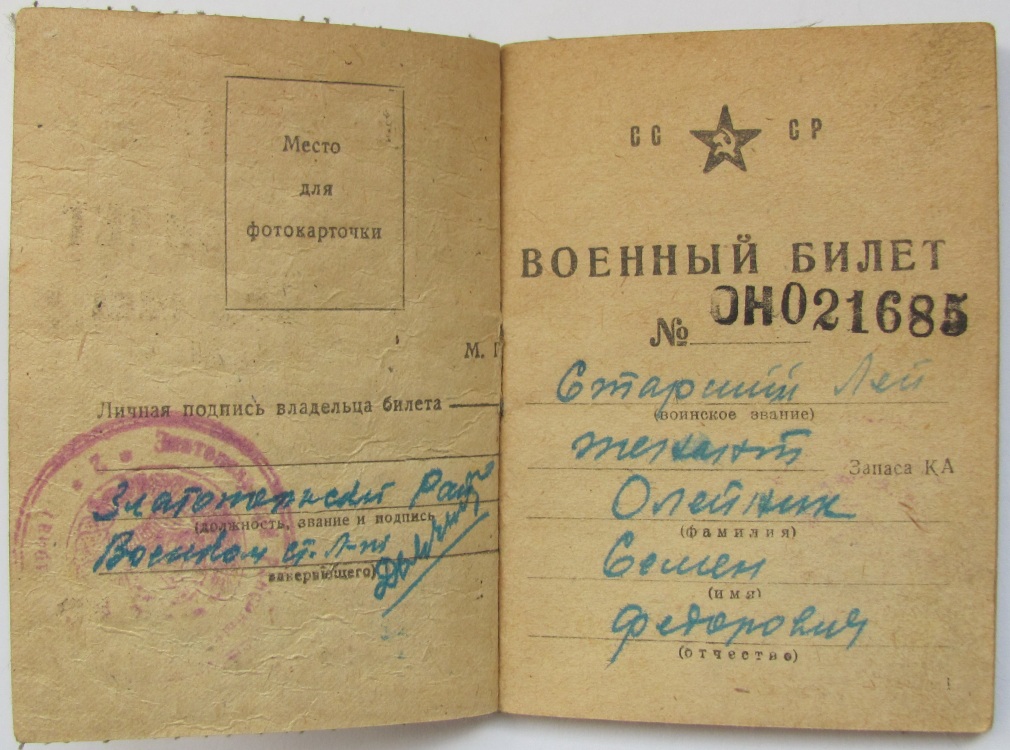 Место
для
фотокарточки
М. П
Личная подпись владельца билета
Златопольский Рай
(должность, звание и подпись
Военком ст. л-т
заверяющего)
СС СР
ВОЕННЫЙ БИЛЕТ
№ ОН021685
Старший Лей
(воинское звание)
тенант Запаса КА
Олейник
(фамилия)
Семен
(имя)
Федорович
(отчество)